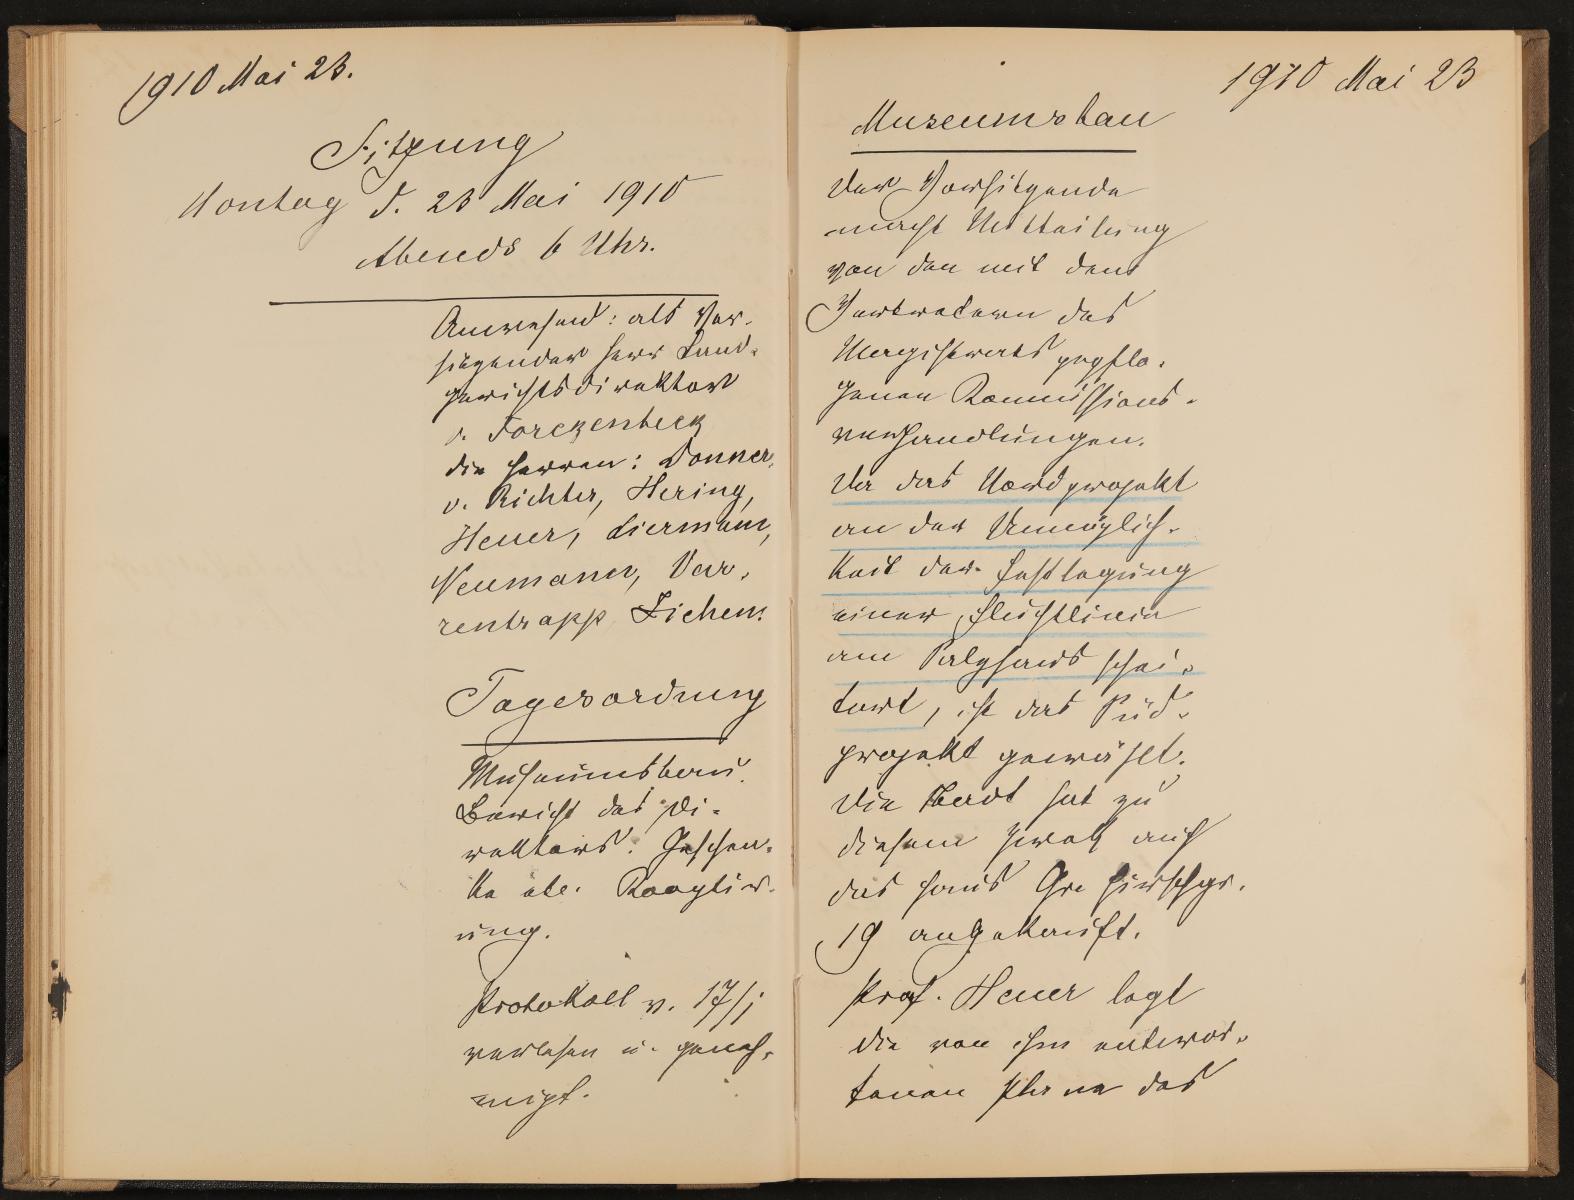 1910 Mai 23.
Sitzung
Montag d. 23 Mai 1910
Abends 6 Uhr.
Anwesend: als Vor-
sitzender Herr Land-
gerichtsdirektor
v. Forckenbeck
die Herren: Donner-
v. Richter, Hering,
Heuer, Liermann,
Neumann, Var-
rentrapp Ziehen.
Tagesordnung
Museumsbau.
Bericht des Di-
rektors. Geschen-
ke etc. Kooptier-
ung.
Protokoll v. 17/j
verlesen u. geneh-
migt.
1910 Mai 23
Museumsbau
Der Vorsitzende
macht Mitteilung
von den mit den
Vertretern des
Magistrats gepflo-
genen Kommissions-
verhandlungen.
Da das Nordprojekt
an der Unmöglich-
keit der Festlegung
einer Fluchtlinie
am Salzhaus schei-
tert, ist das Süd-
projekt gewählt.
Die Stadt hat zu
diesem Zweck auch
das Haus Gr. Hirschgr.
19 angekauft.
Prof. Heuer legt
die von ihm entwor-
fenen Pläne des